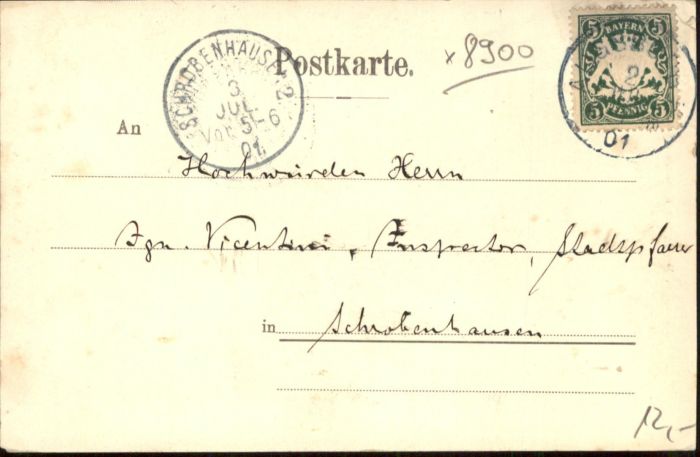 Postkarte.
x 8900
SCHROBENHAUSEN 2
3
JUL
Vor. 5-6
01
5 BAYERN 5
5 PFENNIG 5
2
01
An
Hochwürden Herrn
Ign. Vicentini, Inspector, Stadtpfarrer
in Schrobenhausen
12,-